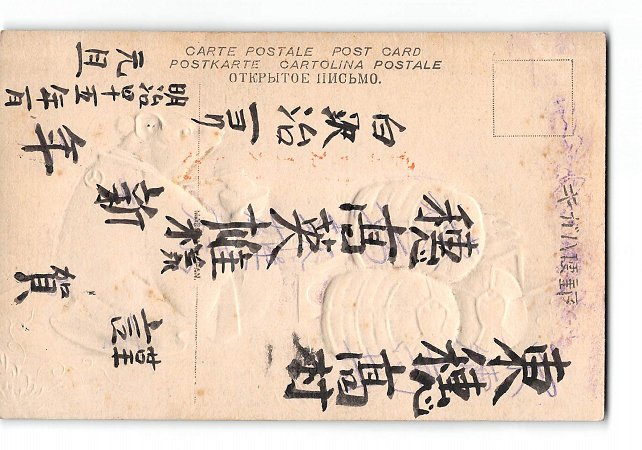 CARTE POSTALE POST CARD
POSTKARTE CARTOLINA POSTALE
ОТКРЫТОЕ ПИСЬМО.
東穂高村
穂高英雄様
白沢治一ヨリ
謹賀新年
明治四十五年一月
元旦